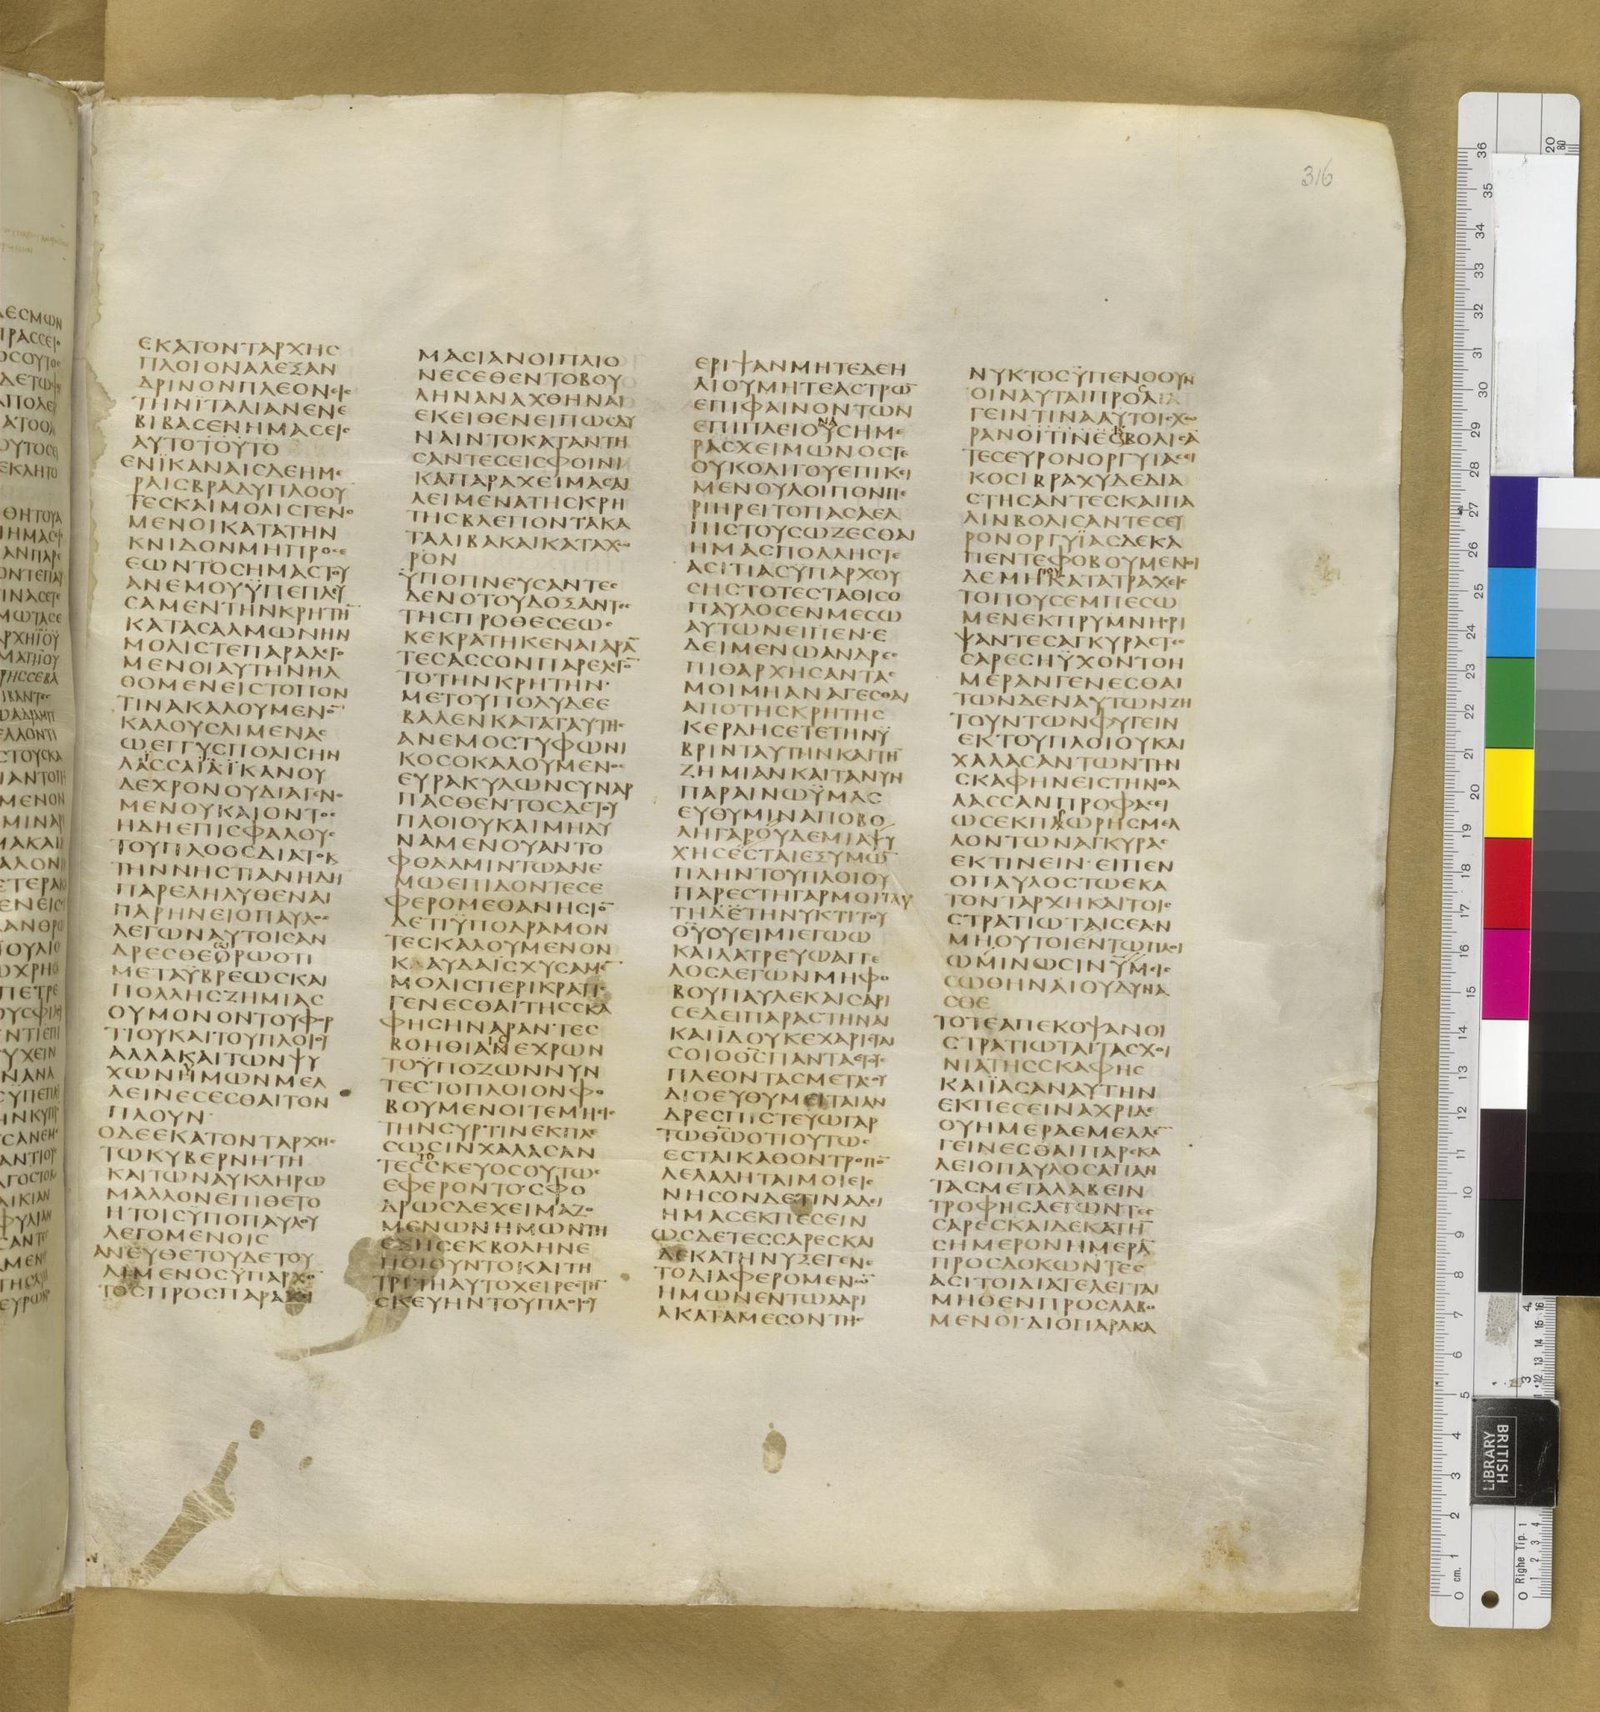 316
ΕΚΑΤΟΝΤΑΡΧΗϹ
ΠΛΟΙΟΝΑΛΕΞΑΝ
ΔΡΙΝΟΝΠΛΕΟΝΕΙϹ
ΤΗΝΪΤΑΛΙΑΝΕΝΕ
ΒΙΒΑϹΕΝΗΜΑϹΕΙϹ
ΑΥΤΟΤΟΥΤΟ
ΕΝΪΚΑΝΑΙϹΔΕΗΜΕ
ΡΑΙϹΒΡΑΔΥΠΛΟΟΥ
ΤΕϹΚΑΙΜΟΛΙϹΓΕΝΟ
ΜΕΝΟΙΚΑΤΑΤΗΝ
ΚΝΙΔΟΝΜΗΠΡΟϹΕ
ΕΩΝΤΟϹΗΜΑϹΤΟΥ
ΑΝΕΜΟΥΫΠΕΠΛΕΥ
ϹΑΜΕΝΤΗΝΚΡΗΤΗ̅
ΚΑΤΑϹΑΛΜΩΝΗΝ
ΜΟΛΙϹΤΕΠΑΡΑΛΕΓΟ
ΜΕΝΟΙΑΥΤΗΝΗΛ
ΘΟΜΕΝΕΙϹΤΟΠΟΝ
ΤΙΝΑΚΑΛΟΥΜΕΝΟ̅
ΚΑΛΟΥϹΛΙΜΕΝΑϹ
ΩΕΓΓΥϹΠΟΛΙϹΗΝ
ΛΑϹϹΑΪΑΪΚΑΝΟΥ
ΔΕΧΡΟΝΟΥΔΙΑΓΕΝΟ
ΜΕΝΟΥΚΑΙΟΝΤΟϹ
ΗΔΗΕΠΙϹΦΑΛΟΥϹ
ΤΟΥΠΛΟΟϹΔΙΑΤΟΚ
ΤΗΝΝΗϹΤΙΑΝΗΔΗ
ΠΑΡΕΛΗΛΥΘΕΝΑΙ
ΠΑΡΗΝΕΙΟΠΑΥΛΟϹ
ΛΕΓΩΝΑΥΤΟΙϹΑΝ
ΔΡΕϹΘΕΟΡΩΟΤΙ
ΜΕΤΑΫΒΡΕΩϹΚΑΙ
ΠΟΛΛΗϹΖΗΜΙΑϹ
ΟΥΜΟΝΟΝΤΟΥΦΟΡ
ΤΙΟΥΚΑΙΤΟΥΠΛΟΙΟΥ
ΑΛΛΑΚΑΙΤΩΝΨΥ
ΧΩΝΗΜΩΝΜΕΛ
ΛΕΙΝΕϹΕϹΘΑΙΤΟΝ
ΠΛΟΥΝ
ΟΔΕΕΚΑΤΟΝΤΑΡΧΗϹ
ΤΩΚΥΒΕΡΝΗΤΗ
ΚΑΙΤΩΝΑΥΚΛΗΡΩ
ΜΑΛΛΟΝΕΠΙΘΕΤΟ
ΗΤΟΙϹΥΠΟΠΑΥΛΟΥ
ΛΕΓΟΜΕΝΟΙϹ
ΑΝΕΥΘΕΤΟΥΔΕΤΟΥ
ΛΙΜΕΝΟϹΫΠΑΡΧΟ̅
ΤΟϹΠΡΟϹΠΑΡΑΧΙ
ΜΑϹΙΑΝΟΙΠΛΙΟ
ΝΕϹΕΘΕΝΤΟΒΟΥ
ΛΗΝΑΝΑΧΘΗΝΑΙ
ΕΚΕΙΘΕΝΕΙΠΩϹΔΥ
ΝΑΙΝΤΟΚΑΤΑΝΤΗ
ϹΑΝΤΕϹΕΙϹΦΟΙΝΙ
ΚΑΠΑΡΑΧΕΙΜΑϹΑΙ
ΛΕΙΜΕΝΑΤΗϹΚΡΗ
ΤΗϹΒΛΕΠΟΝΤΑΚΑ
ΤΑΛΙΒΑΚΑΙΚΑΤΑΧΩ
ΡΟΝ
ΫΠΟΠΝΕΥϹΑΝΤΕϹ
ΔΕΝΟΤΟΥΔΟΞΑΝΤΕϹ
ΤΗϹΠΡΟΘΕϹΕΩϹ
ΚΕΚΡΑΤΗΚΕΝΑΙΑΡΑ̅
ΤΕϹΑϹϹΟΝΠΑΡΕΛΕΓΟ̅
ΤΟΤΗΝΚΡΗΤΗΝ·
ΜΕΤΟΥΠΟΛΥΔΕΕ
ΒΑΛΕΝΚΑΤΑΤΑΥΤΗϹ
ΑΝΕΜΟϹΤΥΦΩΝΙ
ΚΟϹΟΚΑΛΟΥΜΕΝΟϹ
ΕΥΡΑΚΥΛΩΝϹΥΝΑΡ
ΠΑϹΘΕΝΤΟϹΔΕΤΟΥ
ΠΛΟΙΟΥΚΑΙΜΗΔΥ
ΝΑΜΕΝΟΥΑΝΤΟ
ΦΘΑΛΜΙΝΤΩΑΝΕ
ΜΩΕΠΙΔΟΝΤΕϹΕ
ΦΕΡΟΜΕΘΑΝΗϹΙΟ̅
ΔΕΤΙΫΠΟΔΡΑΜΟΝ
ΤΕϹΚΑΛΟΥΜΕΝΟΝ
ΚΛΑΥΔΑΪϹΧΥϹΑΜΕ̅
ΜΟΛΙϹΠΕΡΙΚΡΑΤΙϹ
ΓΕΝΕϹΘΑΙΤΗϹϹΚΑ
ΦΗϹΗΝΑΡΑΝΤΕϹ
ΒΟΗΘΙΑΝΕΧΡΩΝ
ΤΟΫΠΟΖΩΝΝΥΝ
ΤΕϹΤΟΠΛΟΙΟΝΦΟ
ΒΟΥΜΕΝΟΙΤΕΜΗΕΙϹ
ΤΗΝϹΥΡΤΙΝΕΚΠΕ
ϹΩϹΙΝΧΑΛΑϹΑΝ
ΤΕϹϹΚΕΥΟϹΟΥΤΩϹ
ΕΦΕΡΟΝΤΟϹΦΟ
ΔΡΩϹΔΕΧΕΙΜΑΖΟ
ΜΕΝΩΝΗΜΩΝΤΗ
ΕΞΗϹΕΚΒΟΛΗΝΕ
ΠΟΙΟΥΝΤΟΚΑΙΤΗ
ΤΡΙΤΗΑΥΤΟΧΕΙΡΕϹΤΗ̅
ϹΚΕΥΗΝΤΟΥΠΛΟΙΟΥ
ΕΡΙΨΑΝΜΗΤΕΔΕΗ
ΛΙΟΥΜΗΤΕΑϹΤΡΩ̅
ΕΠΙΦΑΙΝΟΝΤΩΝ
ΕΠΙΠΛΕΙΟΥϹΗΜΕ
ΡΑϹΧΕΙΜΩΝΟϹΤΕ
ΟΥΚΟΛΙΓΟΥΕΠΙΚΕΙ
ΜΕΝΟΥΛΟΙΠΟΝΠΕ
ΡΙΗΡΕΙΤΟΠΑϹΑΕΛ
ΠΙϹΤΟΥϹΩΖΕϹΘΑΙ
ΗΜΑϹΠΟΛΛΗϹΤΕ
ΑϹΙΤΙΑϹΫΠΑΡΧΟΥ
ϹΗϹΤΟΤΕϹΤΑΘΙϹΟ
ΠΑΥΛΟϹΕΝΜΕϹΩ
ΑΥΤΩΝΕΙΠΕΝ·Ε
ΔΕΙΜΕΝΩΑΝΔΡΕϹ
ΠΙΘΑΡΧΗϹΑΝΤΑϹ
ΜΟΙΜΗΑΝΑΓΕϹΘΑΙ
ΑΠΟΤΗϹΚΡΗΤΗϹ
ΚΕΡΔΗϹΕΤΕΤΗΝΫ
ΒΡΙΝΤΑΥΤΗΝΚΑΙΤΗ̅
ΖΗΜΙΑΝΚΑΙΤΑΝΥΝ
ΠΑΡΑΙΝΩΫΜΑϹ
ΕΥΘΥΜΙΝΑΠΟΒΟ
ΛΗΓΑΡΟΥΔΕΜΙΑΨΥ
ΧΗϹΕϹΤΑΙΕΞΥΜΩ̅
ΠΛΗΝΤΟΥΠΛΟΙΟΥ
ΠΑΡΕϹΤΗΓΑΡΜΟΙΤΑΥ
ΤΗΔΕΤΗΝΥΚΤΙΤΟΥ
ΘΥΟΥΕΙΜΙΕΓΩΩ
ΚΑΙΛΑΤΡΕΥΩΑΓΓΕ
ΛΟϹΛΕΓΩΝΜΗΦΟ
ΒΟΥΠΑΥΛΕΚΑΙϹΑΡΙ
ϹΕΔΕΙΠΑΡΑϹΤΗΝΑΙ
ΚΑΙΪΔΟΥΚΕΧΑΡΙϹΤΑΙ
ϹΟΙΟΘϹΠΑΝΤΑϹΤΟΥϹ
ΠΛΕΟΝΤΑϹΜΕΤΑϹΟΥ
ΔΙΟΕΥΘΥΜΕΙΤΑΙΑΝ
ΔΡΕϹΠΙϹΤΕΥΩΓΑΡ
ΤΩΘΩΟΤΙΟΥΤΩϹ
ΕϹΤΑΙΚΑΘΟΝΤΡΟΠΟ̅
ΛΕΛΑΛΗΤΑΙΜΟΙΕΙϹ
ΝΗϹΟΝΔΕΤΙΝΑΔΕΙ
ΗΜΑϹΕΚΠΕϹΕΙΝ
ΩϹΔΕΤΕϹϹΑΡΕϹΚΑΙ
ΔΕΚΑΤΗΝΥΞΕΓΕΝΕ
ΤΟΔΙΑΦΕΡΟΜΕΝΩ̅
ΗΜΩΝΕΝΤΩΑΔΡΙ
ΑΚΑΤΑΜΕϹΟΝΤΗϹ
ΝΥΚΤΟϹΫΠΕΝΟΟΥΝ
ΟΙΝΑΥΤΑΙΠΡΟϹΑ
ΓΕΙΝΤΙΝΑΑΥΤΟΙϹΧΩ
ΡΑΝΟΙΤΙΝΕϹΒΟΛΙϹΑ
ΤΕϹΕΥΡΟΝΟΡΓΥΙΑϹΕΙ
ΚΟϹΙΒΡΑΧΥΔΕΔΙΑ
ϹΤΗϹΑΝΤΕϹΚΑΙΠΑ
ΛΙΝΒΟΛΙϹΑΝΤΕϹΕΥ
ΡΟΝΟΡΓΥΪΑϹΔΕΚΑ
ΠΕΝΤΕΦΟΒΟΥΜΕΝΟΙ
ΔΕΜΗΠΟΥΚΑΤΑΤΡΑΧΕΙϹ
ΤΟΠΟΥϹΕΜΠΕϹΩ
ΜΕΝΕΚΠΡΥΜΝΗϹΡΙ
ΨΑΝΤΕϹΑΓΚΥΡΑϹΤΕϹ
ϹΑΡΕϹΗΫΧΟΝΤΟΗ
ΜΕΡΑΝΓΕΝΕϹΘΑΙ
ΤΩΝΔΕΝΑΥΤΩΝΖΗ
ΤΟΥΝΤΩΝΦΥΓΕΙΝ
ΕΚΤΟΥΠΛΟΙΟΥΚΑΙ
ΧΑΛΑϹΑΝΤΩΝΤΗΝ
ϹΚΑΦΗΝΕΙϹΤΗΝΘΑ
ΛΑϹϹΑΝΠΡΟΦΑϹΕΙ
ΩϹΕΚΠΛΩΡΗϹΜΕΛ
ΛΟΝΤΩΝΑΓΚΥΡΑϹ
ΕΚΤΙΝΕΙΝ·ΕΙΠΕΝ
ΟΠΑΥΛΟϹΤΩΕΚΑ
ΤΟΝΤΑΡΧΗΚΑΙΤΟΙϹ
ϹΤΡΑΤΙΩΤΑΙϹΕΑΝ
ΜΗΟΥΤΟΙΕΝΤΩΠΛΟΙ
ΩΜΙΝΩϹΙΝΫΜΕΙϹ
ϹΩΘΗΝΑΙΟΥΔΥΝΑ
ϹΘΕ
ΤΟΤΕΑΠΕΚΟΨΑΝΟΙ
ϹΤΡΑΤΙΩΤΑΙΤΑϹΧΟΙ
ΝΙΑΤΗϹϹΚΑΦΗϹ
ΚΑΙΪΑϹΑΝΑΥΤΗΝ
ΕΚΠΕϹΕΙΝΑΧΡΙΔΕ
ΟΥΗΜΕΡΑΕΜΕΛΛΕ̅
ΓΕΙΝΕϹΘΑΙΠΑΡΕΚΑ
ΛΕΙΟΠΑΥΛΟϹΑΠΑΝ
ΤΑϹΜΕΤΑΛΑΒΕΙΝ
ΤΡΟΦΗϹΛΕΓΩΝΤΕϹ
ϹΑΡΕϹΚΑΙΔΕΚΑΤΗ̅
ϹΗΜΕΡΟΝΗΜΕΡΑ̅
ΠΡΟϹΔΟΚΩΝΤΕϹ
ΑϹΙΤΟΙΔΙΑΤΕΛΕΙΤΑΙ
ΜΗΘΕΝΠΡΟϹΛΑΒΟ
ΜΕΝΟΙ·ΔΙΟΠΑΡΑΚΑ
BRITISH
LIBRARY
Righe Tip. 1